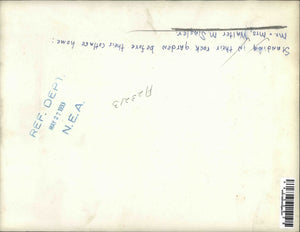 Standing in their rock garden before their cottage home:
Mr. - Mrs. Walter M.
A23213
REF. DEPT.
MAY 27 1933
N.E.A.